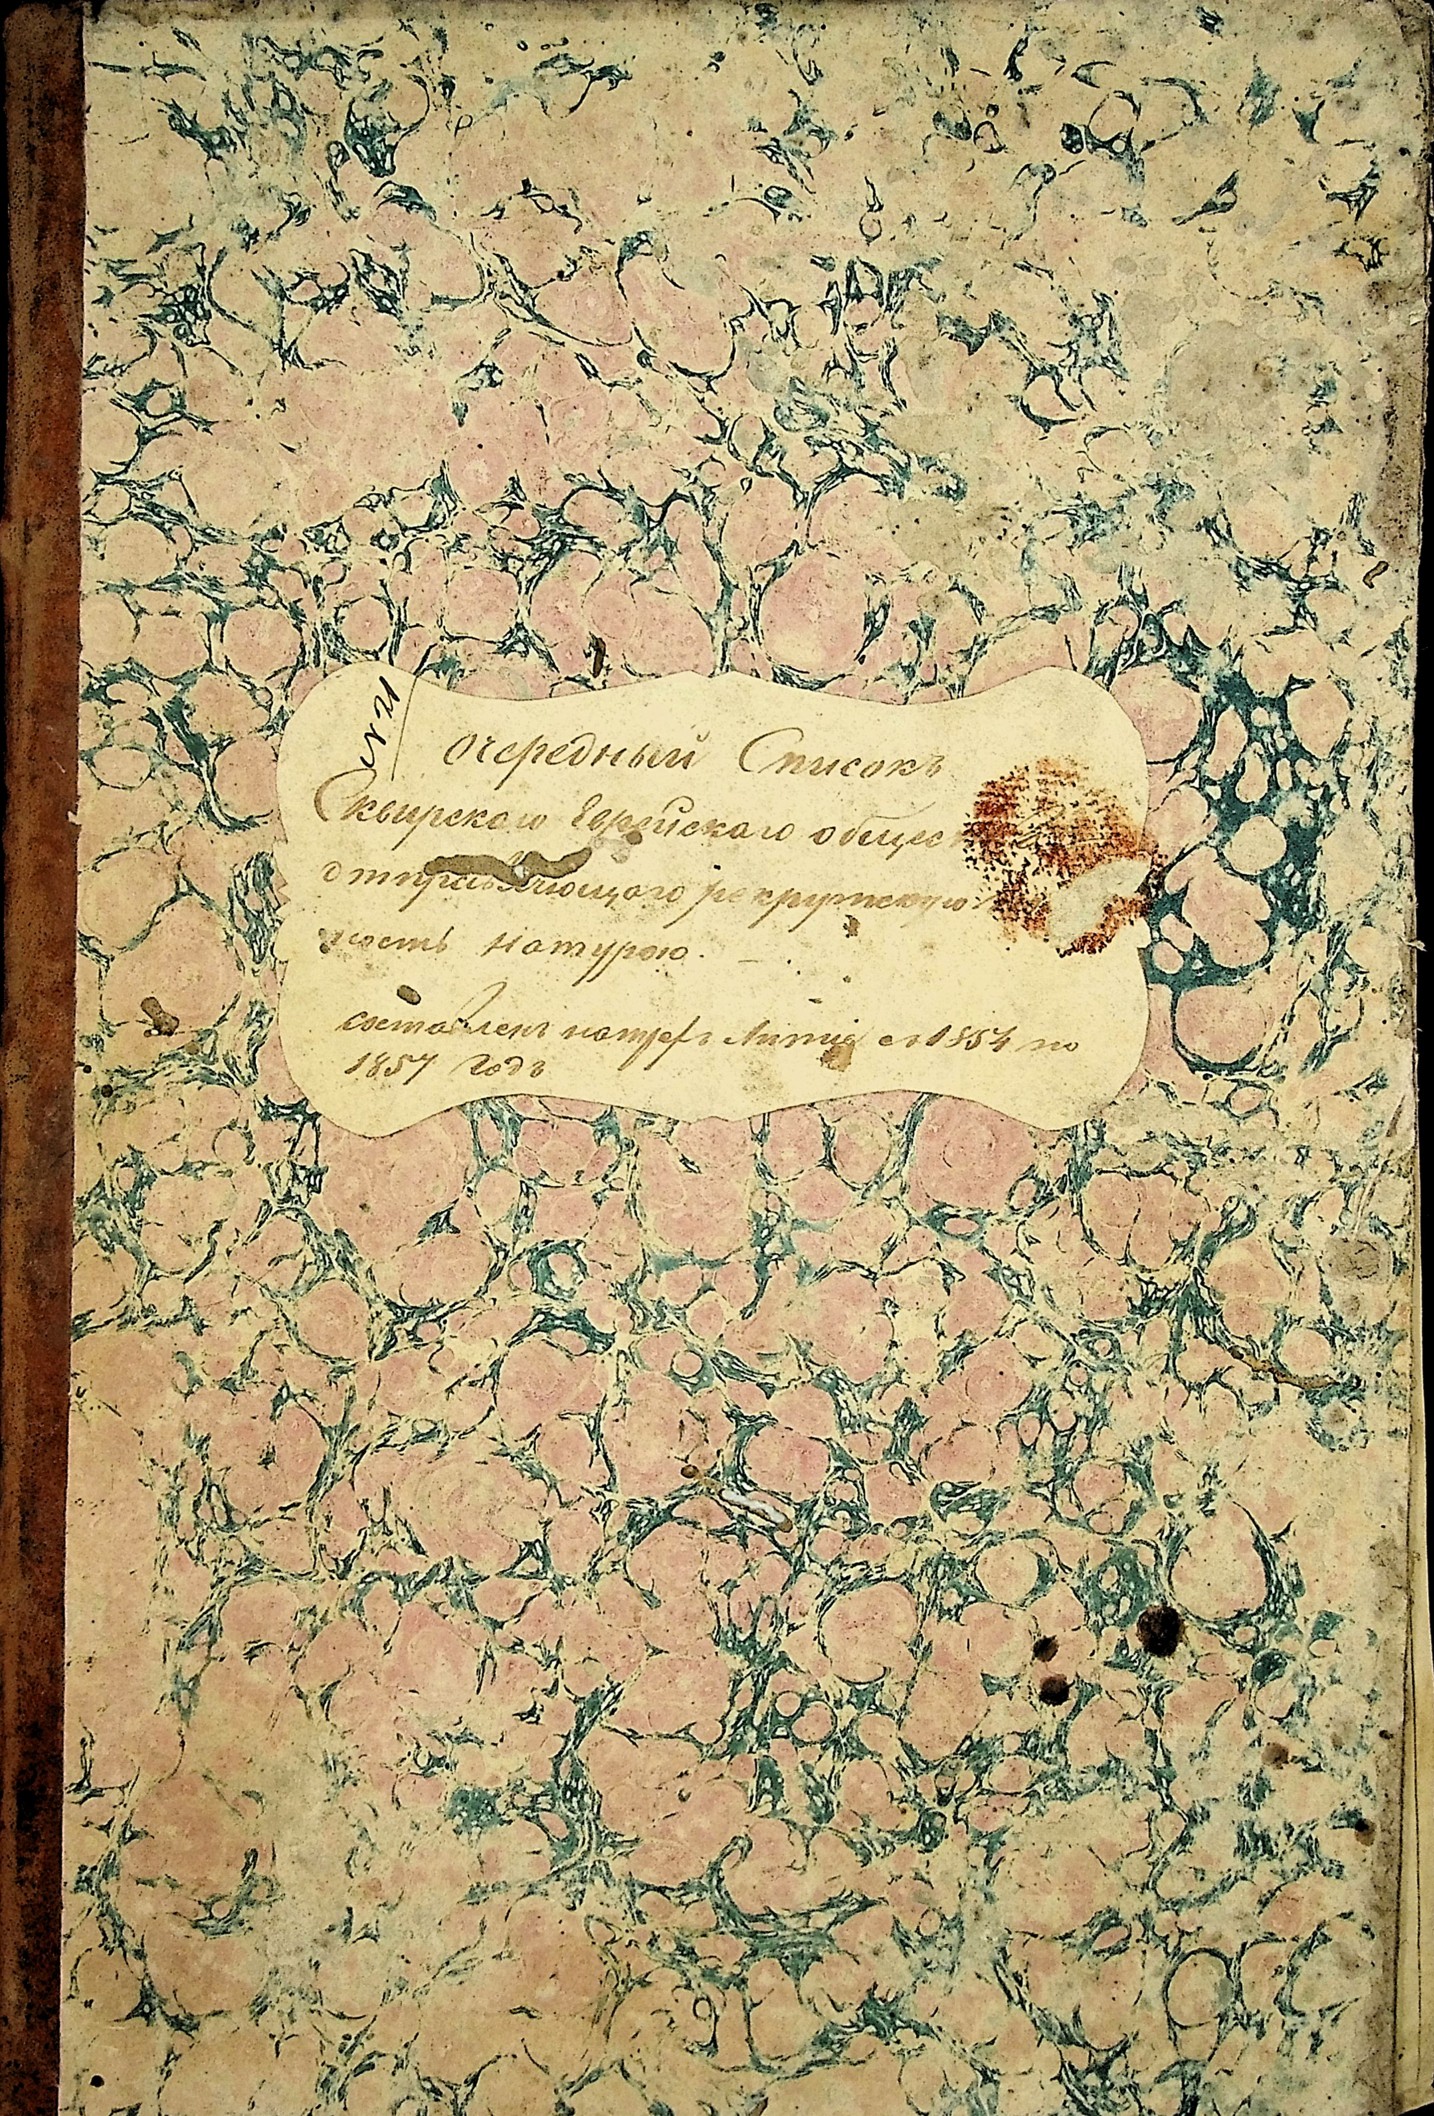 N 21
Очередный Списокъ
Сквирскаго Еврейскаго общес
отправляющаго рекрутскую
ность натурою.
составленъ на три съ 1854 по
1857 годъ